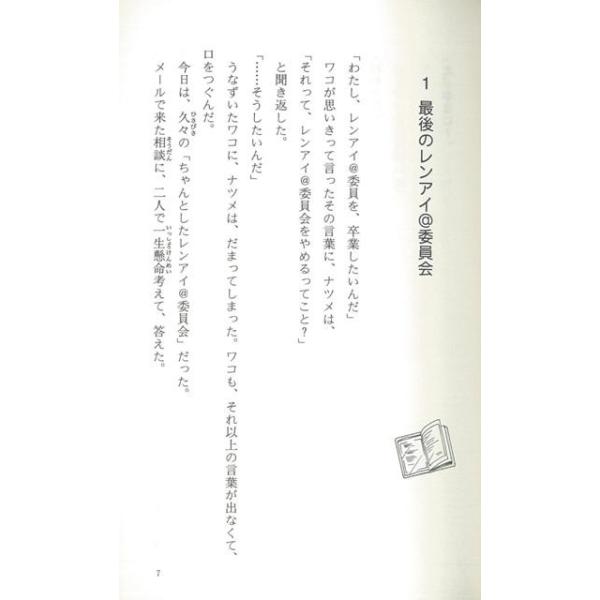 1 最後のレンアイ@委員会
「わたし、レンアイ@委員を、卒業したいんだ」
ワコが思いきって言ったその言葉に、ナツメは、
「それって、レンアイ@委員会をやめるってこと？」
と聞き返した。
「……そうしたいんだ」
うなずいたワコに、ナツメは、だまってしまった。ワコも、それ以上の言葉が出なくて、
口をつぐんだ。
今日は、久々の「ちゃんとしたレンアイ@委員会」だった。
ひさびさ
メールで来た相談に、二人で一生懸命考えて、答えた。
そうだん
いっしょうけんめい
7